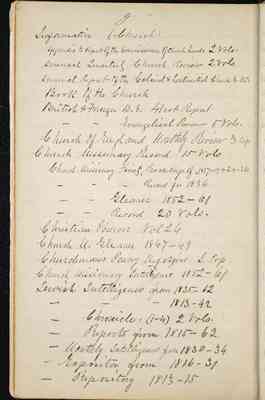 Information (Church)
Appendix to Report of the Commissioners of Church Lands 2 Vols.
Annual Quarterly Church Review 2 Vols
Annual Report of the Colonial & Continental Church &
Book of the Church
British & Foreign B.S. 41st Report
- - Evangelical Review 5 Vols.
Church of England Monthly Review 3 Cop
Church Missionary Record 15 Vols
Church Missionary Society Proceedings of
- - - Record for 1836
- - Gleaner 1852-61
- - Record 20 Vols.
Christian Observer Vol 26
Church M. Gleaner 1847-49
Churchman's Penny Magazine 2 Cop
Church Missionary Intelligence 1852-61
Jewish Intelligence from 1835-62
- - - 1813-42
- Chronicle (1-4) 2 Vols.
- Reports from 1815-62
- Monthly Intelligence from 1830-34
- Expositor from 1816-31
- Repository 1813-15